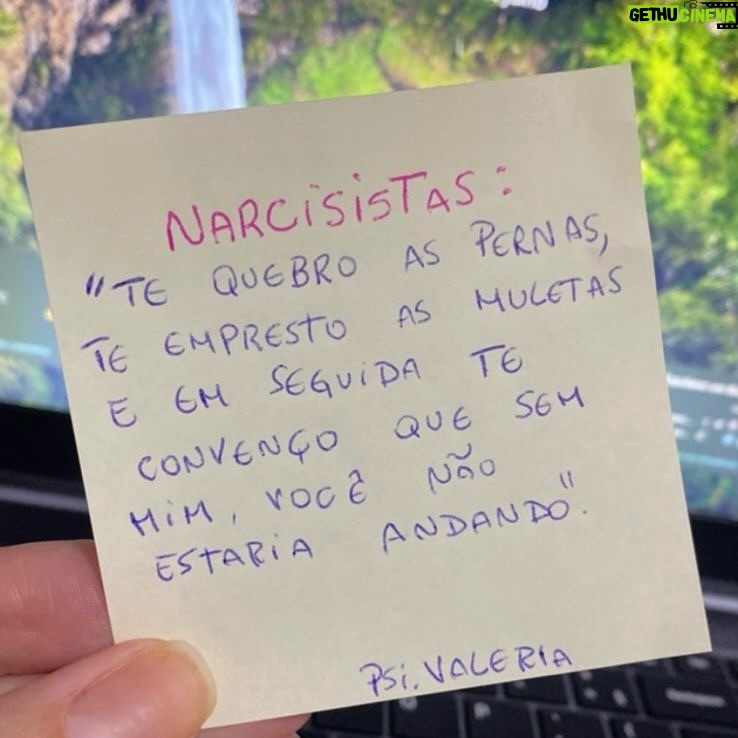 GETHU CINEMA
NARCISISTAS:
"TE QUEBRO AS PERNAS,
TE EMPRESTO AS MULETAS
E EM SEGUIDA TE
CONVENÇO QUE SEM
MIM, VOCÊ NÃO
ESTARIA ANDANDO".
PSI. VALERIA